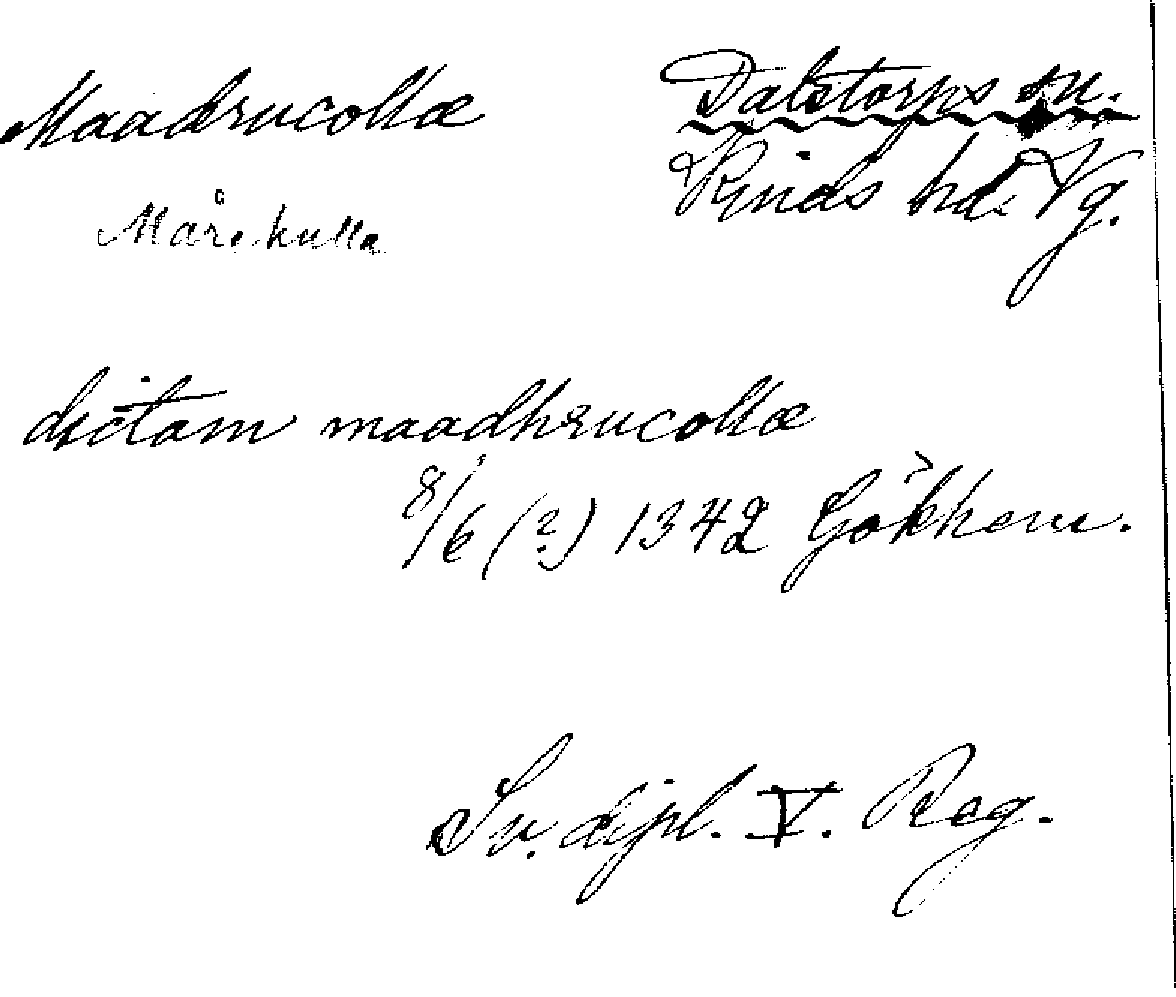 Maadrucollæ
Dalstorps sn.
Kinds hd. Vg.
Mårekulla
dictam maadhrucollæ
8/6 (?) 1342 Gökhem.
Sv. dipl. V. Reg.